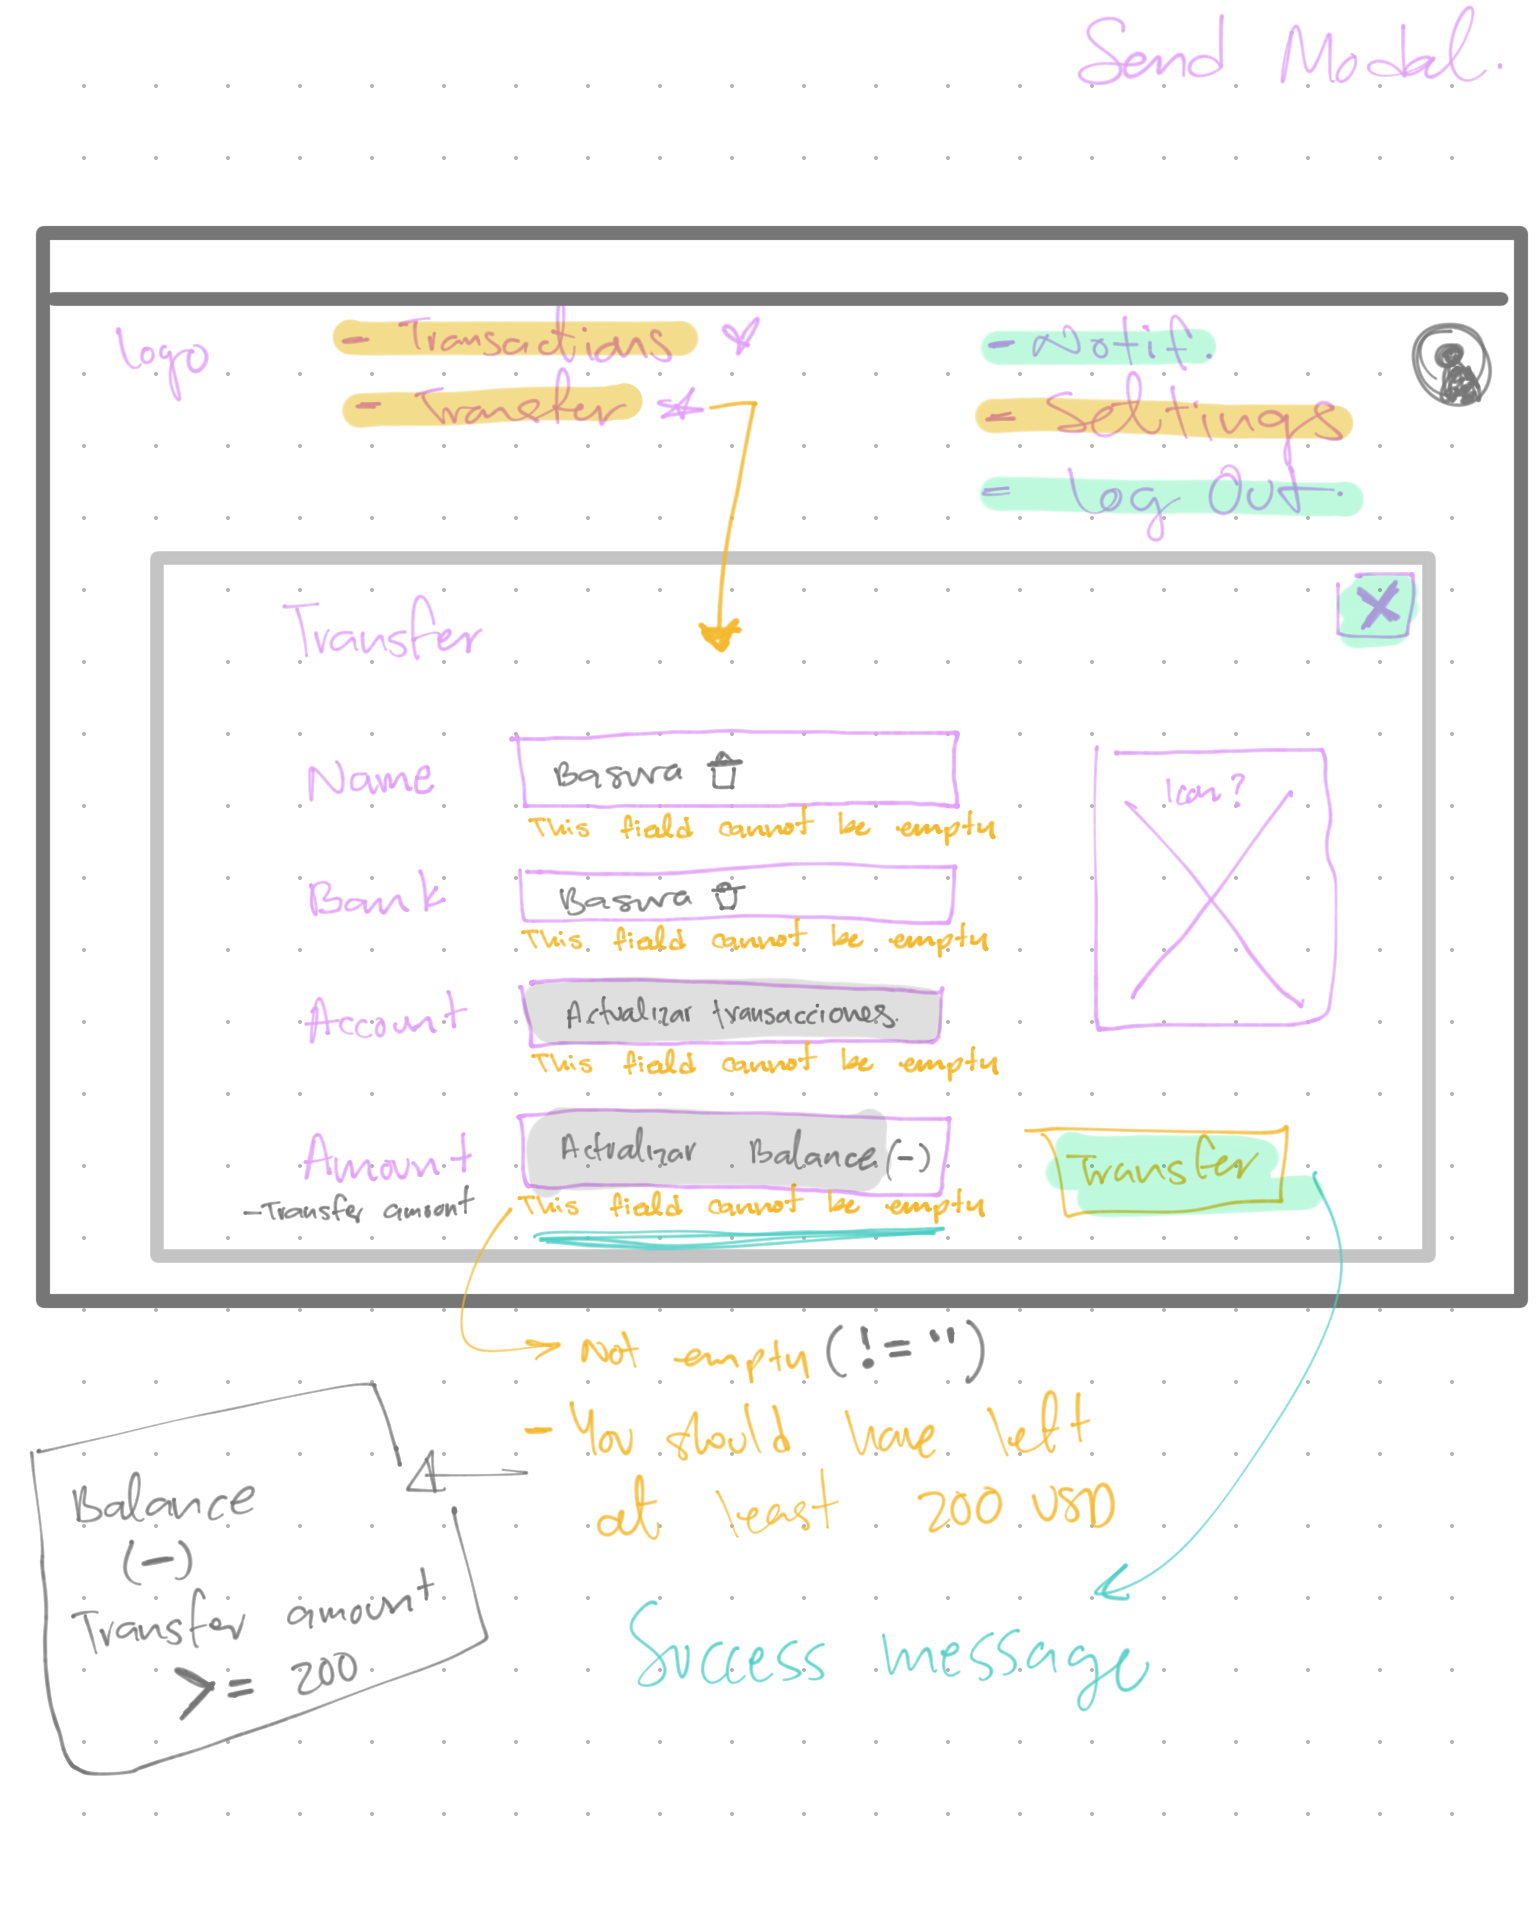 Send Modal.
Logo
- Transactions
- Transfer
- Notif.
- Settings
= Log Out.
Transfer
X
Name
Basura
This field cannot be empty
Icon?
Bank
Basura
This field cannot be empty
Account
Actualizar transacciones.
This field cannot be empty
Amount
- Transfer amount
Actualizar Balance (-)
This field cannot be empty
Transfer
Not empty (!= '')
- You should have left
at least 200 USD
Balance
(-)
Transfer amount
>= 200
Success message